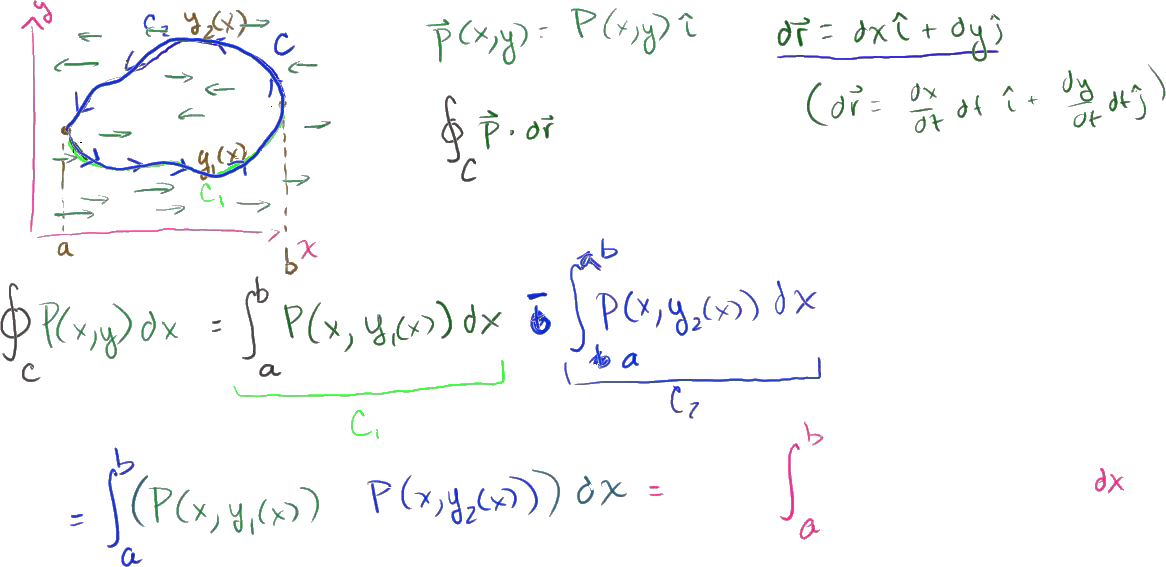 y
C₂ y₂(x) C
y₁(x)
C₁
a b x
p⃗(x,y) = P(x,y) î
dr⃗ = dx î + dy ĵ
(dr⃗ = dx/dt dt î + dy/dt dt ĵ)
∮_C p⃗ · dr⃗
∮_C P(x,y) dx = ∫_a^b P(x, y₁(x)) dx - ∫_a^b P(x, y₂(x)) dx
C₁ C₂
= ∫_a^b (P(x, y₁(x)) P(x, y₂(x))) dx = ∫_a^b dx